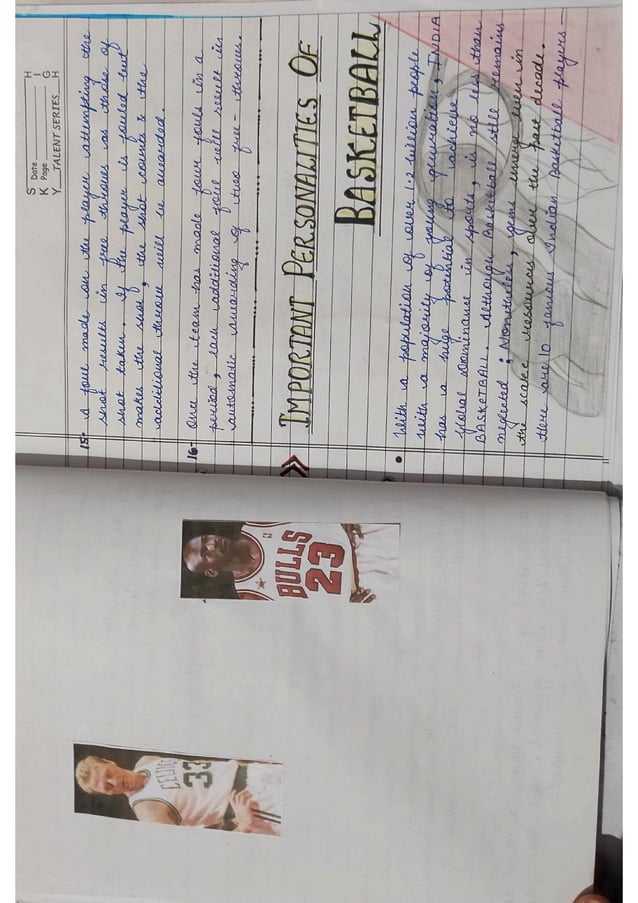 S Date
K Page
Y TALENT SERIES
H
I
G
H
15- A foul made on the player attempting the
shot results in free throws as those of
shot taken. If the player is fouled but
makes the shot, the shot counts & the
additional throw will be awarded.
16- Once the team has made four fouls in a
period, each additional foul will result in
automatic awarding of two free-throws.
IMPORTANT PERSONALITIES OF
BASKETBALL
With a population of over 1.2 billion people
with a majority of young generation, INDIA
has a huge potential to achieve
global dominance in sports, is no less than
BASKETBALL. Although Basketball still remains
neglected; Nonetheless, gems emerge even in
the scarce resources over the past decade.
Here are 10 famous Indian Basketball players-
BULLS
23
CELTIC
33